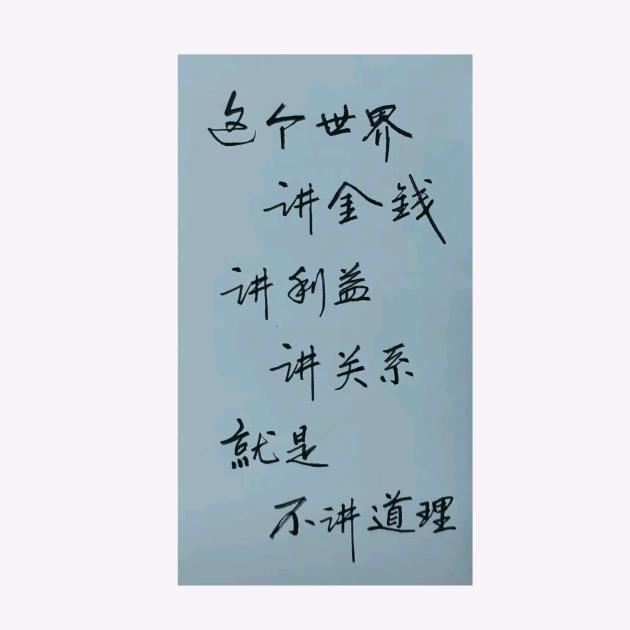 这个世界
讲金錢
讲利益
讲关系
就是
不讲道理